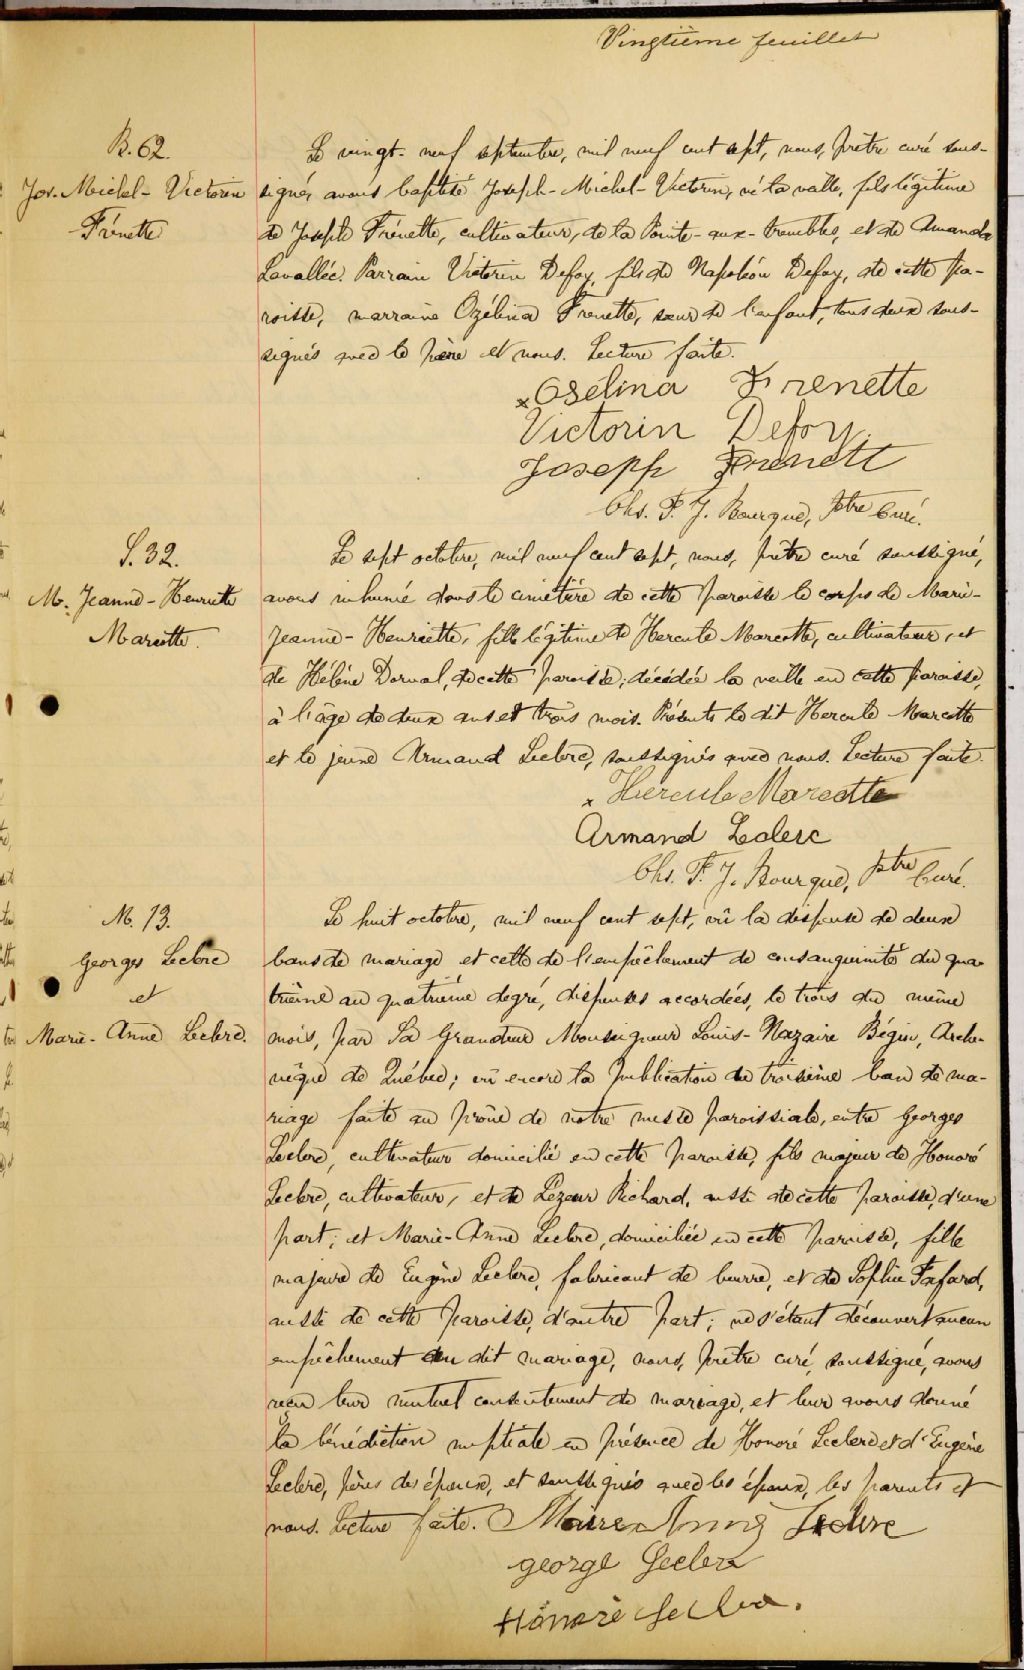 Vingtième feuillet
B. 62.
Jos. Michel-Victorin
Frénette
Le vingt-neuf septembre, mil neuf cent sept, nous, prêtre curé sous-
signé, avons baptisé Joseph-Michel-Victorin, né la veille, fils légitime
de Joseph Frénette, cultivateur, de la Pointe-aux-trembles, et de Amanda
Lavallée. Parrain Victorin Defoy, fils de Napoléon Defoy, de cette pa-
roisse, marraine Ozélina Frenette, sœur de l'enfant, tous deux sous-
signés avec le père et nous. Lecture faite.
x Osélina Frenette
Victorin Defoy.
Joseph Frenett
Chs. F. J. Bourque, Ptre Curé.
S. 32.
M. Jeanne-Henriette
Marcotte.
Le sept octobre, mil neuf cent sept, nous, prêtre curé soussigné,
avons inhumé dans le cimetière de cette paroisse le corps de Marie-
Jeanne-Henriette, fille légitime de Hercule Marcotte, cultivateur, et
de Hélène Dorval, de cette paroisse, décédée la veille en cette paroisse,
à l'âge de deux ans et trois mois. Présents le dit Hercule Marcotte
et le jeune Armand Leclerc, soussignés avec nous. Lecture faite.
x Hercule Marcotte
Armand Leclerc
Chs. F. J. Bourque, Ptre Curé.
M. 13.
Georges Leclerc
et
Marie-Anne Leclerc.
Le huit octobre, mil neuf cent sept, vû la dispense de deux
bans de mariage et celle de l'empêchement de consanguinité du qua-
trième au quatrième degré, dispenses accordées, le trois du même
mois, par Sa Grandeur Monseigneur Louis-Nazaire Bégin, Arche-
vêque de Québec; vû encore la publication du troisième ban de ma-
riage faite au prône de notre messe paroissiale, entre Georges
Leclerc, cultivateur domicilié en cette paroisse, fils majeur de Honoré
Leclerc, cultivateur, et de Lézeur Richard, aussi de cette paroisse, d'une
part; et Marie-Anne Leclerc, domiciliée en cette paroisse, fille
majeure de Eugène Leclerc, fabricant de beurre, et de Sophie Fafard,
aussi de cette paroisse, d'autre part; ne s'étant découvert aucun
empêchement au dit mariage, nous, prêtre curé, soussigné, avons
reçu leur mutuel consentement de mariage, et leur avons donné
la bénédiction nuptiale en présence de Honoré Leclerc et d'Eugène
Leclerc, pères des époux, et soussignés avec les époux, les parents et
nous. Lecture faite. Maire Anne Leclerc
george Leclerc
Honoré Leclerc.